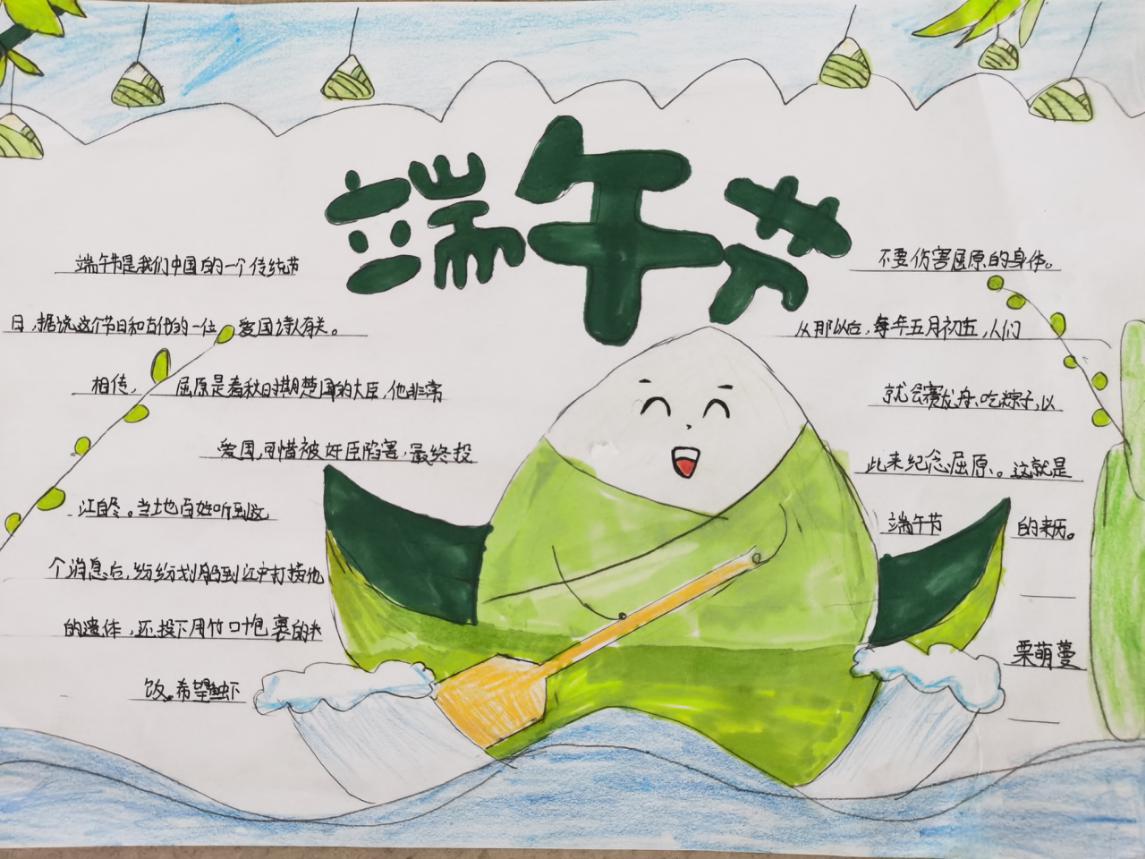 端午节
端午节是我们中国的一个传统节
日,据说这个节日和古代的一位爱国诗人有关。
相传,屈原是春秋时期楚国的大臣,他非常
爱国,可惜被奸臣陷害,最终投
江自尽。当地百姓听到这
个消息后,纷纷划船到江中打捞他
的遗体,还投下用竹叶包裹的米
饭。希望鱼虾
不要伤害屈原的身体。
从那以后,每年五月初五,人们
就会赛龙舟、吃粽子,以
此来纪念屈原。这就是
端午节的来历。
栗萌蔓